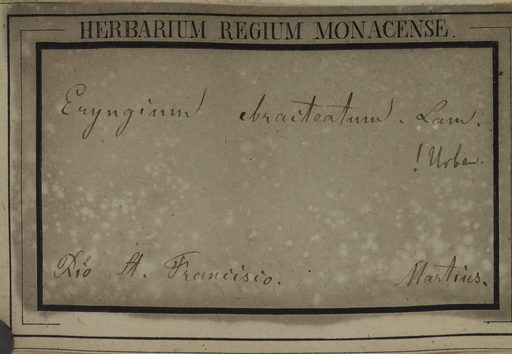 HERBARIUM REGIUM MONACENSE.
Eryngium ebracteatum. Lam.
! Urban.
Rio St. Francisco.
Martius.